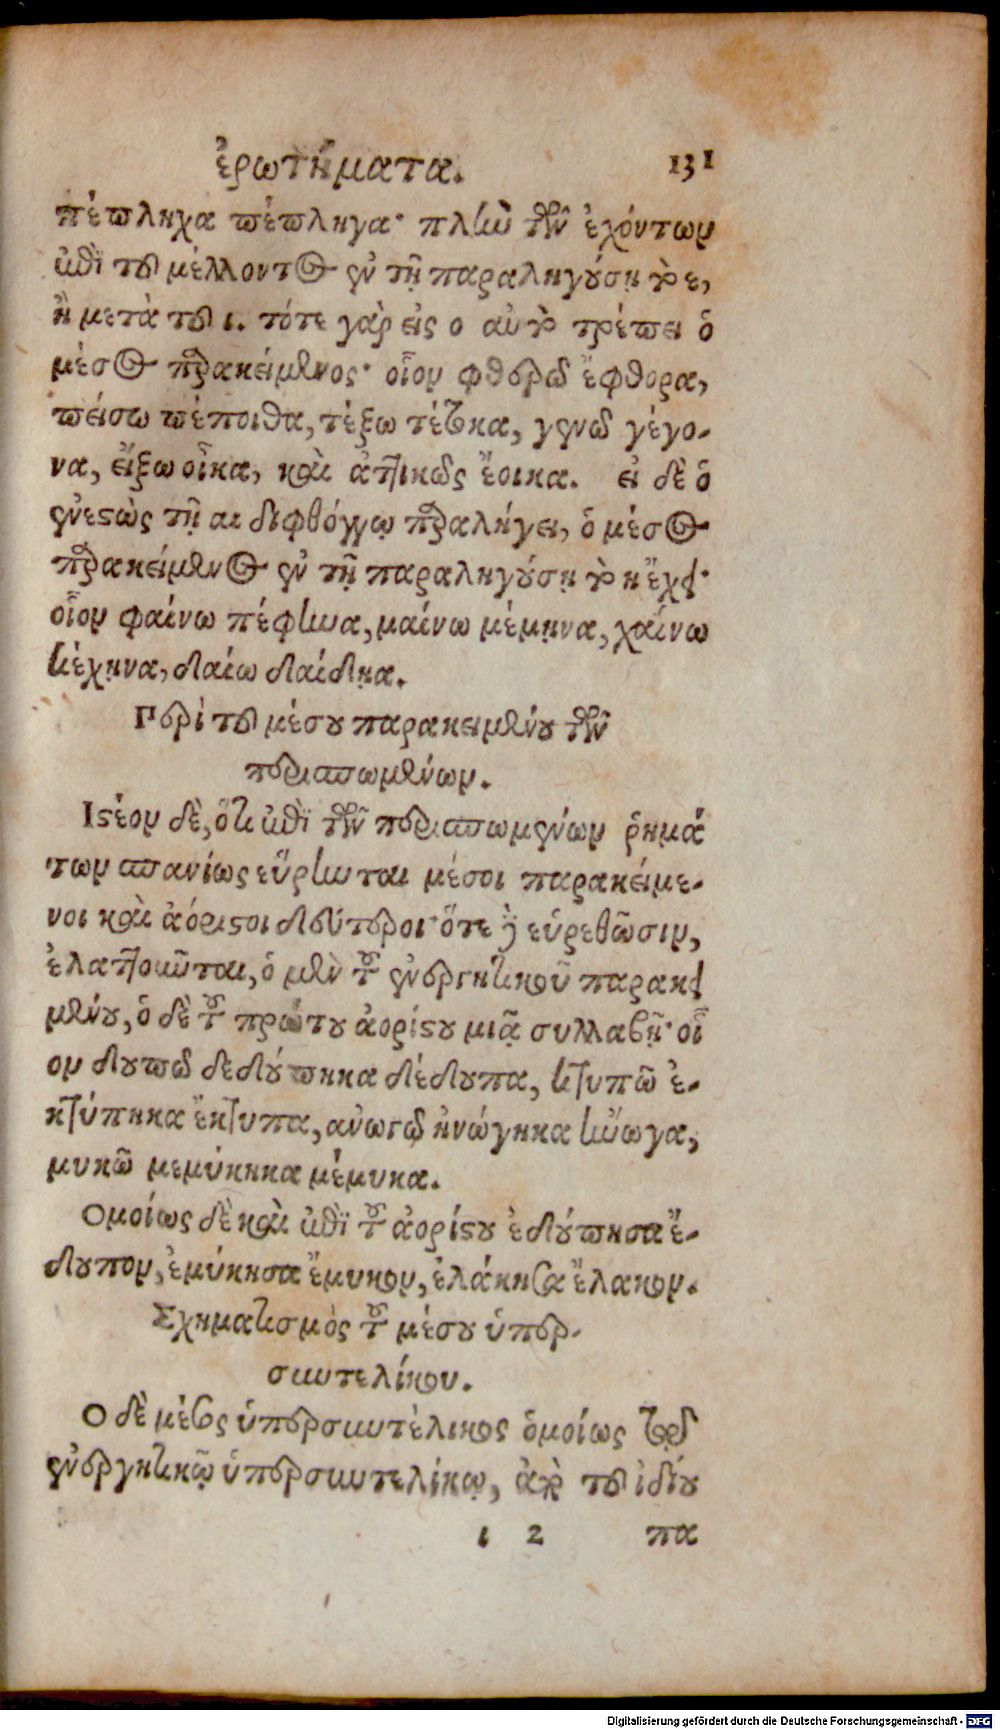 ἐρωτήματα. 131
πέπληχα πέπληγα· πλὴν τῶν ἐχόντων
ἐπὶ τοῦ μέλλοντος ἐν τῇ παραληγούσῃ τὸ ε,
ἢ μετὰ τοῦ ι. τότε γὰρ εἰς ο αὐτὸ τρέπει ὁ
μέσος παρακείμενος· οἷον φθερῶ ἔφθορα,
πείσω πέποιθα, τέξω τέτοκα, γενῶ γέγο-
να, εἴξω οἶκα, καὶ ἀττικῶς ἔοικα. εἰ δὲ ὁ
ἐνεστὼς τῇ αι διφθόγγῳ παραλήγει, ὁ μέσος
παρακείμενος ἐν τῇ παραληγούσῃ τὸ η ἔχει·
οἷον φαίνω πέφηνα, μαίνω μέμηνα, χαίνω
κέχηνα, δαίω δέδηα.
Περὶ τοῦ μέσου παρακειμένου τῶν
περισπωμένων.
Ιστέον δὲ, ὅτι ἐπὶ τῶν περισπωμένων ῥημά
των σπανίως εὕρηνται μέσοι παρακείμε-
νοι καὶ ἀόριστοι δεύτεροι· ὅτε δὲ εὑρεθῶσιν,
ἐλαττοῦνται, ὁ μὲν τοῦ ἐνεργητικοῦ παρακει
μένου, ὁ δὲ τοῦ πρώτου ἀορίστου μιᾷ συλλαβῇ· οἷ
ον δουπῶ δεδούπηκα δέδουπα, κτυπῶ ἐ-
κτύπηκα ἔκτυπα, ἀνωγῶ ἠνώγηκα ἤνωγα,
μυκῶ μεμύκηκα μέμυκα.
Ομοίως δὲ καὶ ἐπὶ τοῦ ἀορίστου ἐδούπησα ἔ-
δουπον, ἐμύκησα ἔμυκον, ἐλάκησα ἔλακον.
Σχηματισμὸς τοῦ μέσου ὑπερ-
συντελίκου.
Ο δὲ μέσος ὑπερσυντέλικος ὁμοίως τῷ
ἐνεργητικῷ ὑπερσυντελίκῳ, ἀπὸ τοῦ ἰδίου
ι 2 πα
Digitalisierung gefördert durch die Deutsche Forschungsgemeinschaft - DFG